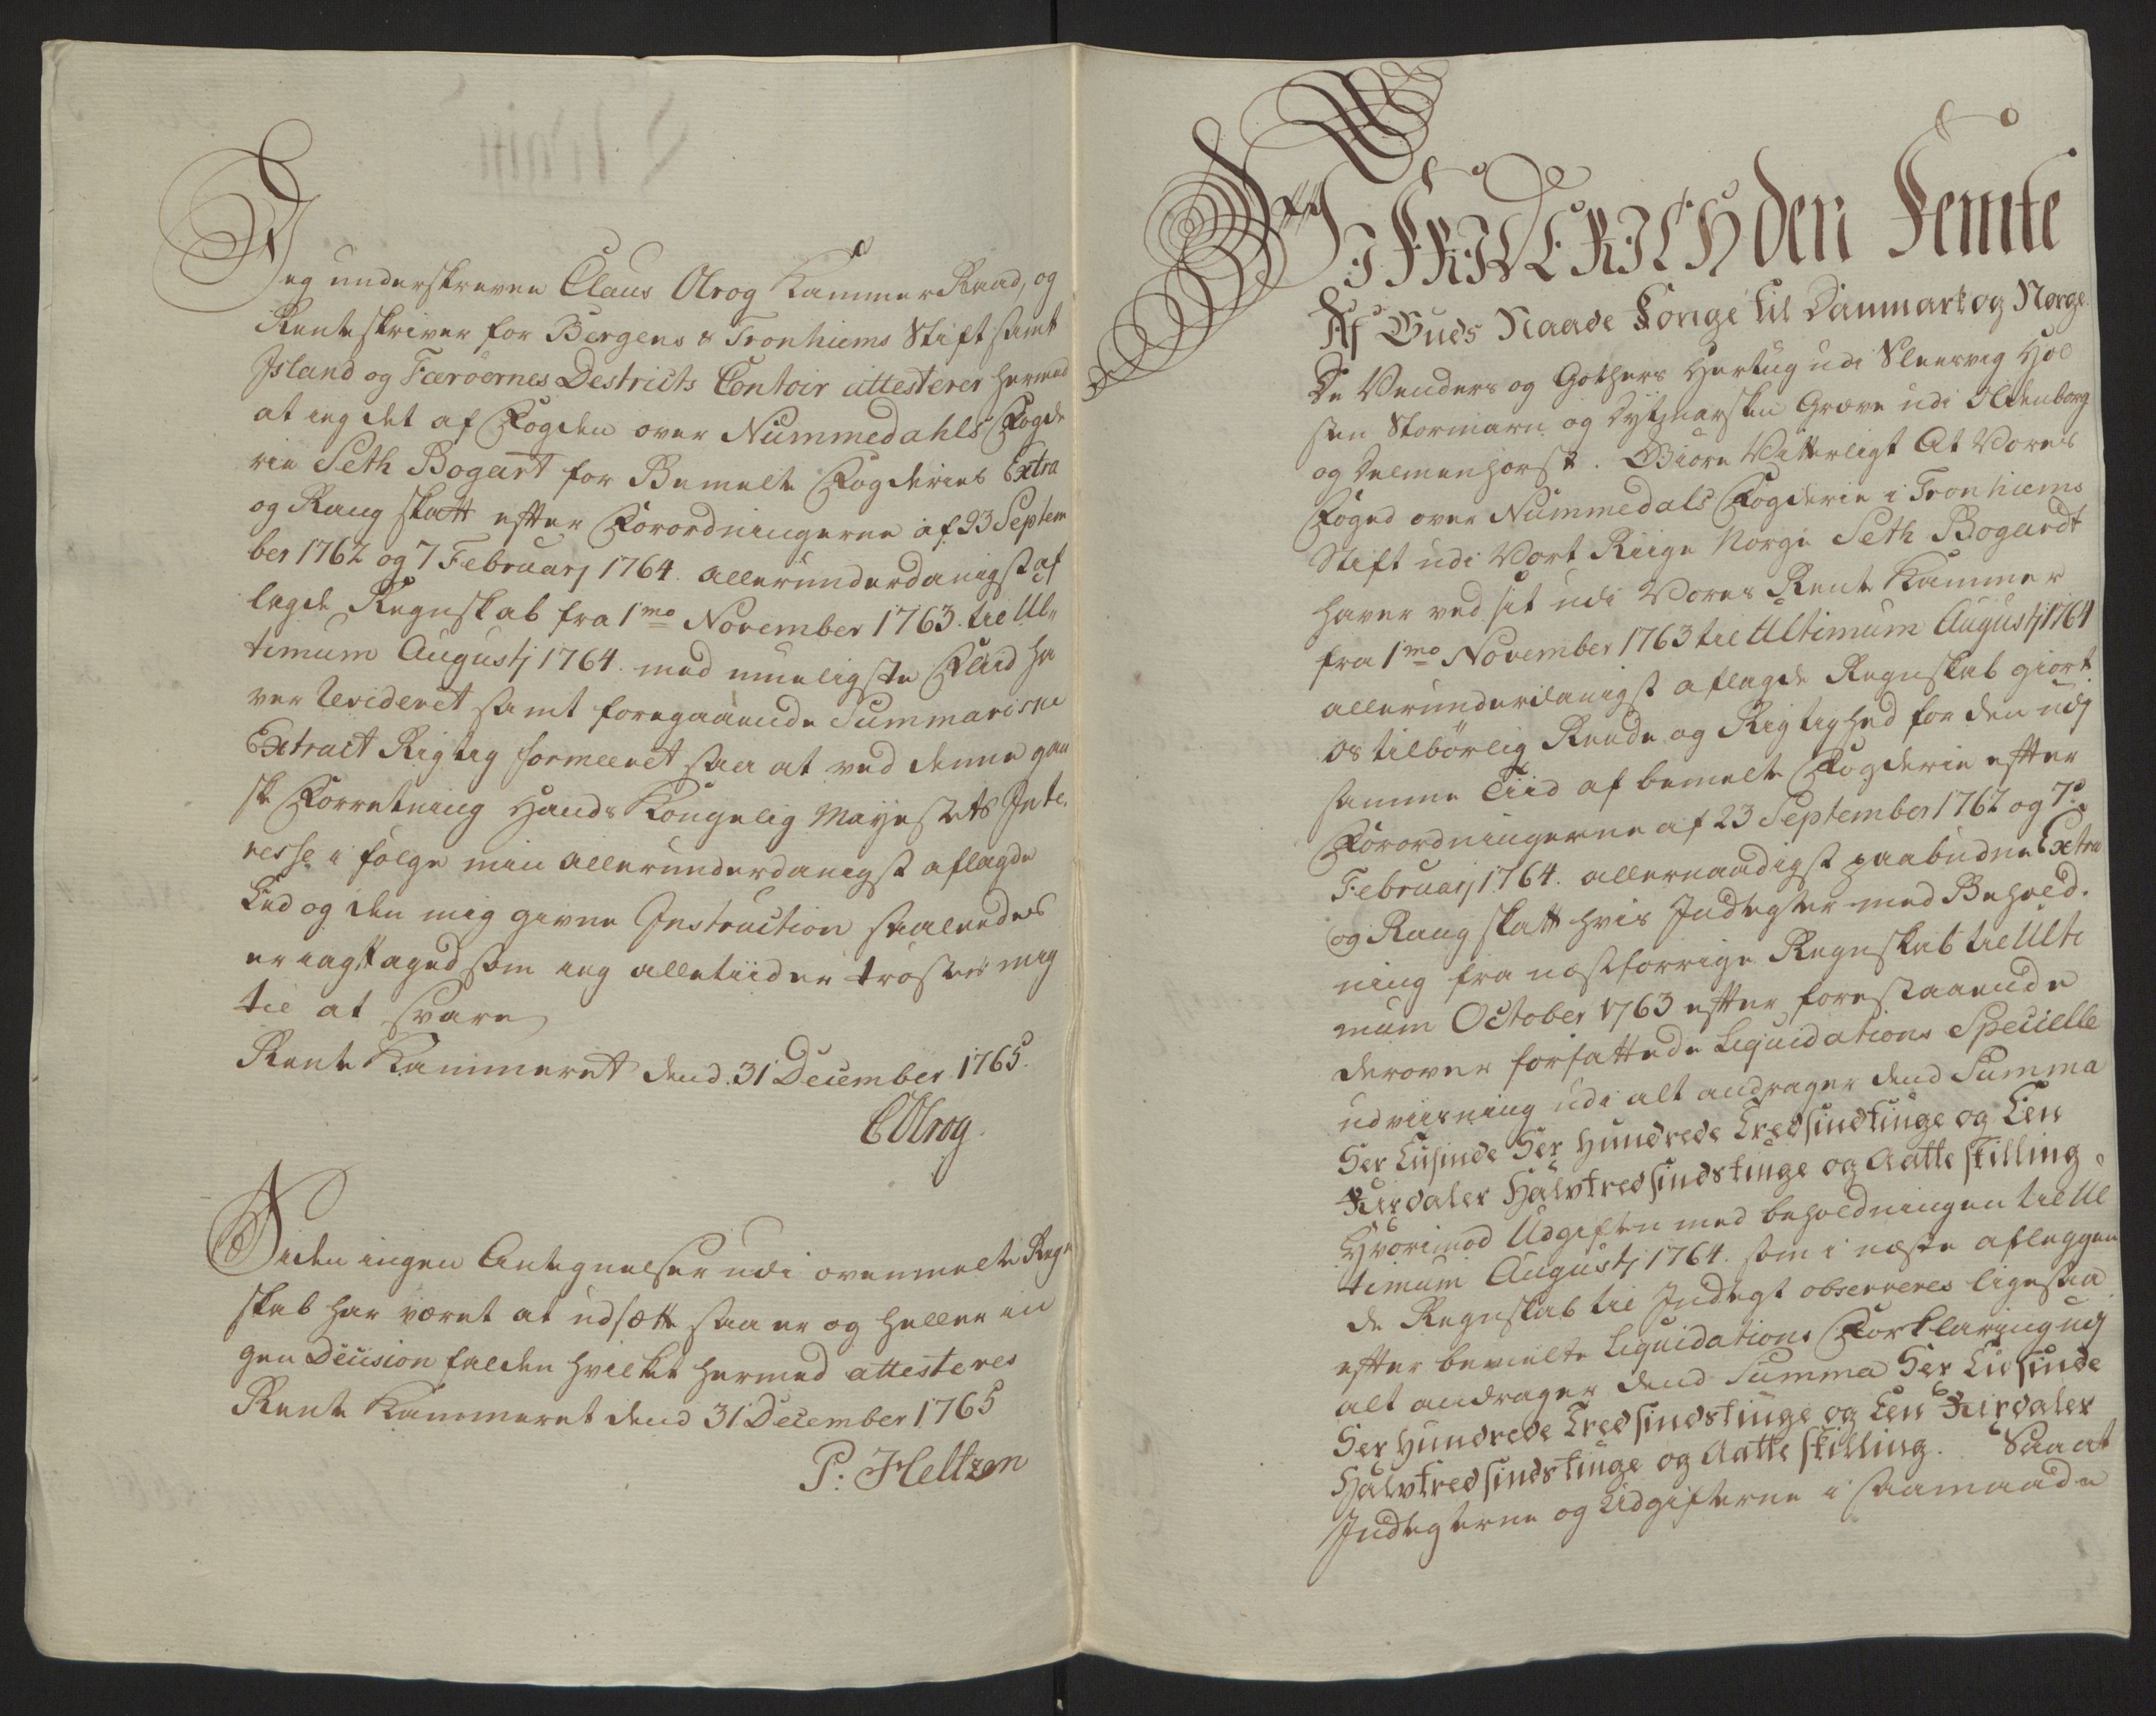 Jeg underskreven Claus Olrog Kammer Raad, og
Renteskriver for Bergens & Tronhiems Stift samt
Island og Færøernes Destricts Contoir attesterer hermed
at ieg det af Fogden over Nummedahls Fogde
rie Seth Bogart for Bemelte Fogderies Extra
og Rang skatt efter Forordningerne af 23 Septem
ber 1762 og 7 Februarj 1764. allerunderdanigst af
lagde Regnskab fra 1mo November 1763. til Ul„
timum Augustj 1764. med mueligste Fliid ha
ver Revideret samt foregaaende Summariske
Extract Rigtig formeenet saa at ved denne gan
ske Forretning Hands Kongelig Mayestets Inte„
resse i følge min allerunderdanigst aflagde
Eed og den mig givne Instruction saaledes
er iagttaged som ieg alletiider trøster mig
til at svare
Rente Kammeret dend 31 December 1765.
COlrog.
Siden ingen Antegnelser udi ovenmelte Regn
skab har været at udsætte saa er og heller in
gen Decision falden hvilket hermed attesteres
Rente Kammeret dend 31 December 1765
P: Heltzen
Wi FRIDERICH den Femte
Af Guds Naade Konge til Danmark og Norge
De Venders og Gothers Hertug udi Slesvig Hol
sten Stormarn og Dytmarsken Greve udi Oldenborg
og Delmenhorst. Giøre Vitterligt At Vores
Foged over Nummedals Fogderie i Tronhiems
Stift udi Vort Riige Norge Seth Bogardt
haver ved sit udi Vores Rente Kammer
fra 1mo November 1763 til Ultimum Augustj 1764
allerunderdanigst aflagde Regnskab giort
os tilbørlig Reede og Rigtighed for den udj
samme Tiid af bemelte Fogderie efter
Forordningerne af 23 September 1762 og 7de
Februarj 1764. allernaadigst paabudne Extra
og Rang skatt hvis Indtegter med Behold.
ning fra næstforrige Regnskab til Ulti
mum October 1763 efter forestaaende
derover forfattede Liquidations Specielle
udviisning udi alt andrager dend Summa
Sex Tusinde Sex Hundrede Tredsindtiuge og Een
Rixdaler Halvtredsindstiuge og Aatte skilling.
Hvorimod Udgiften med beholdningen til Ul
timum Augustj 1764. som i næste afleggen
de Regnskab til Indtegt observeres ligesaa
efter bemelte Liquidations Forklaring udj
alt andrager dend Summa Sex Tusinde
Sex Hundrede Tredsindstiuge og Een Rixdaler
Halvtredsindstiuge og Aatte skilling. Saa at
Indtegterne og Udgifterne i saamaade